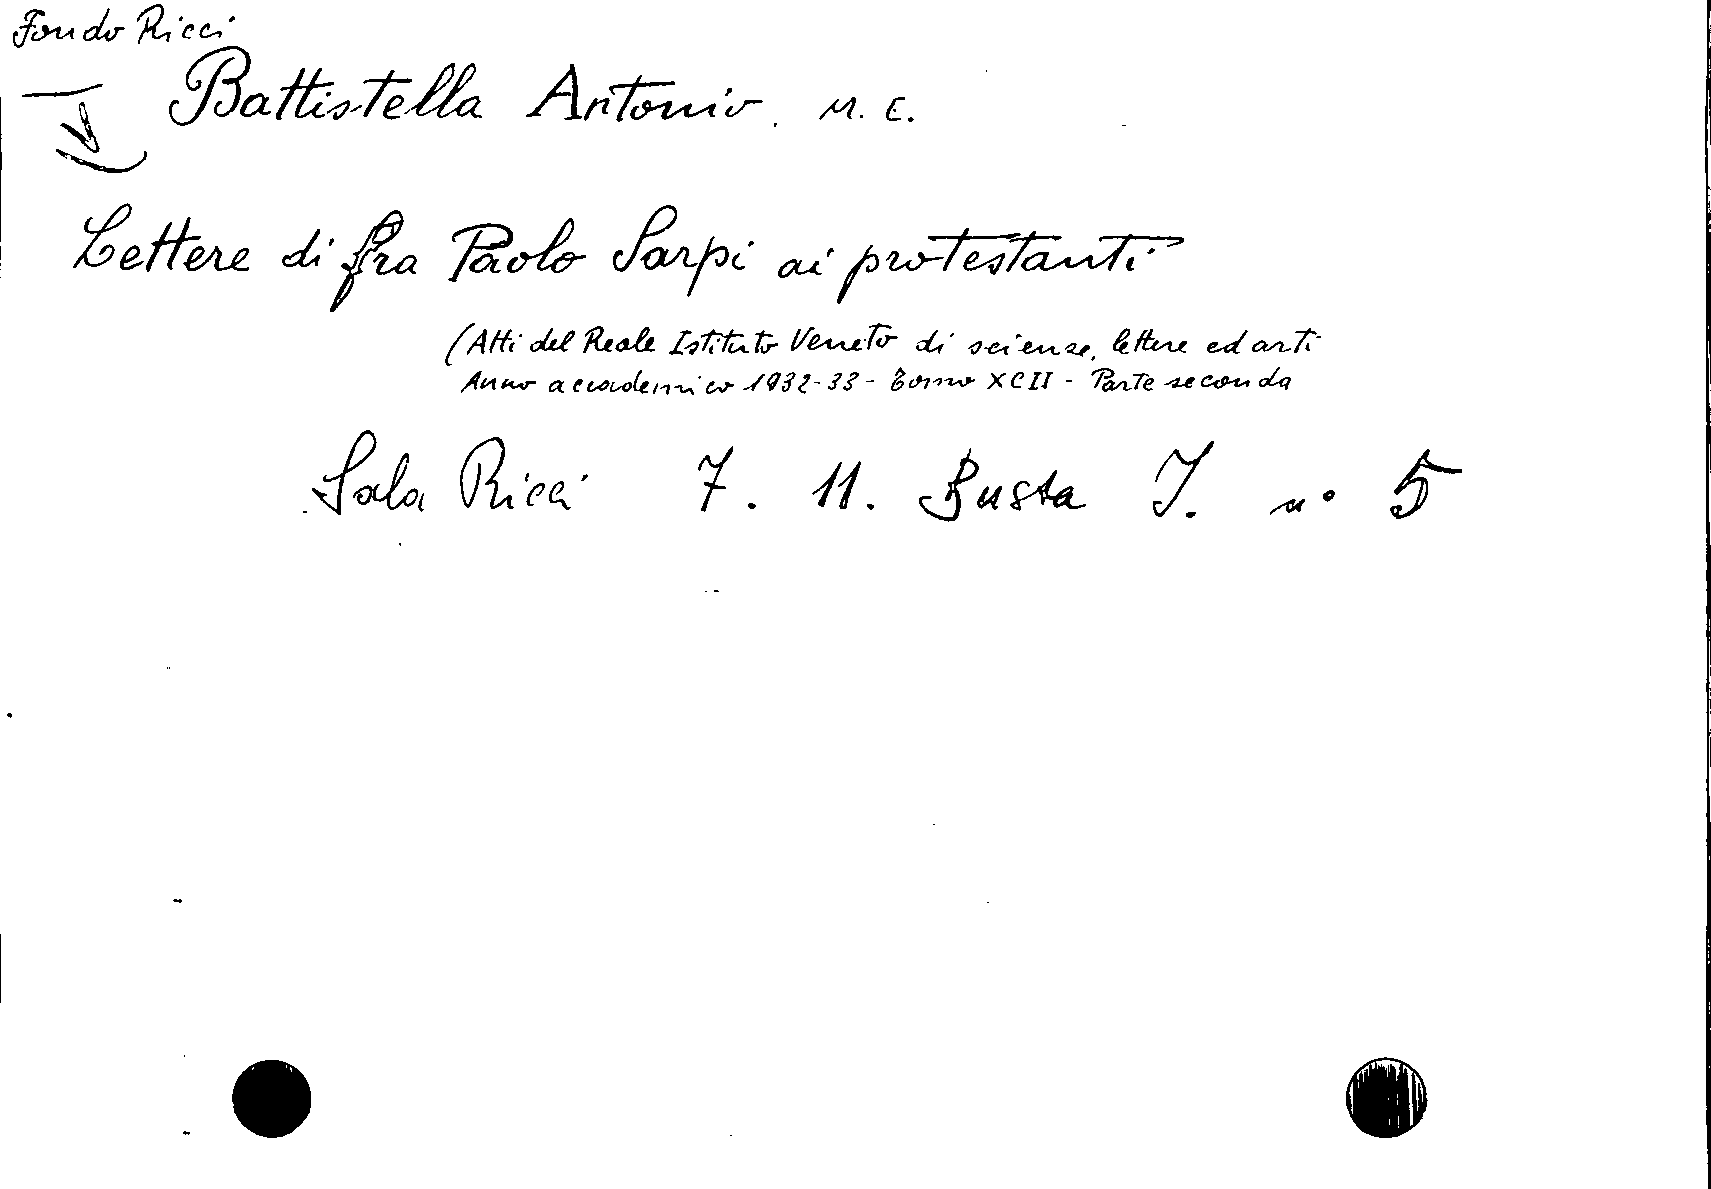 Fondo Ricci
Battistella Antonio. M. E.
Lettere di fra Paolo Sarpi ai protestanti
(Atti del Reale Istituto Veneto di scienze, lettere ed arti
Anno accademico 1932-33 - Tomo XCII - Parte seconda
Sala Ricci 7. 11. Busta I. n° 5